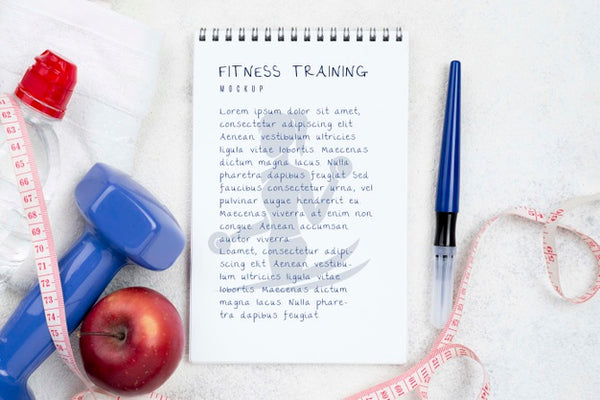 FITNESS TRAINING
MOCKUP
Lorem ipsum dolor sit amet,
consectetur adipiscing elit.
Aenean vestibulum ultricies
ligula vitae lobortis. Maecenas
dictum magna lacus. Nulla
pharetra dapibus feugiat. Sed
faucibus consectetur urna, vel
pulvinar augue hendrerit eu.
Maecenas viverra at enim non
congue. Aenean accumsan
auctor viverra.
Loamet, consectetur adipi-
scing elit. Aenean vestibu-
lum ultricies ligula vitae
lobortis. Maecenas dictum
magna lacus. Nulla phare-
tra dapibus feugiat.
61
62
63
64
65
66
67
68
69
70
71
72
73
74
75